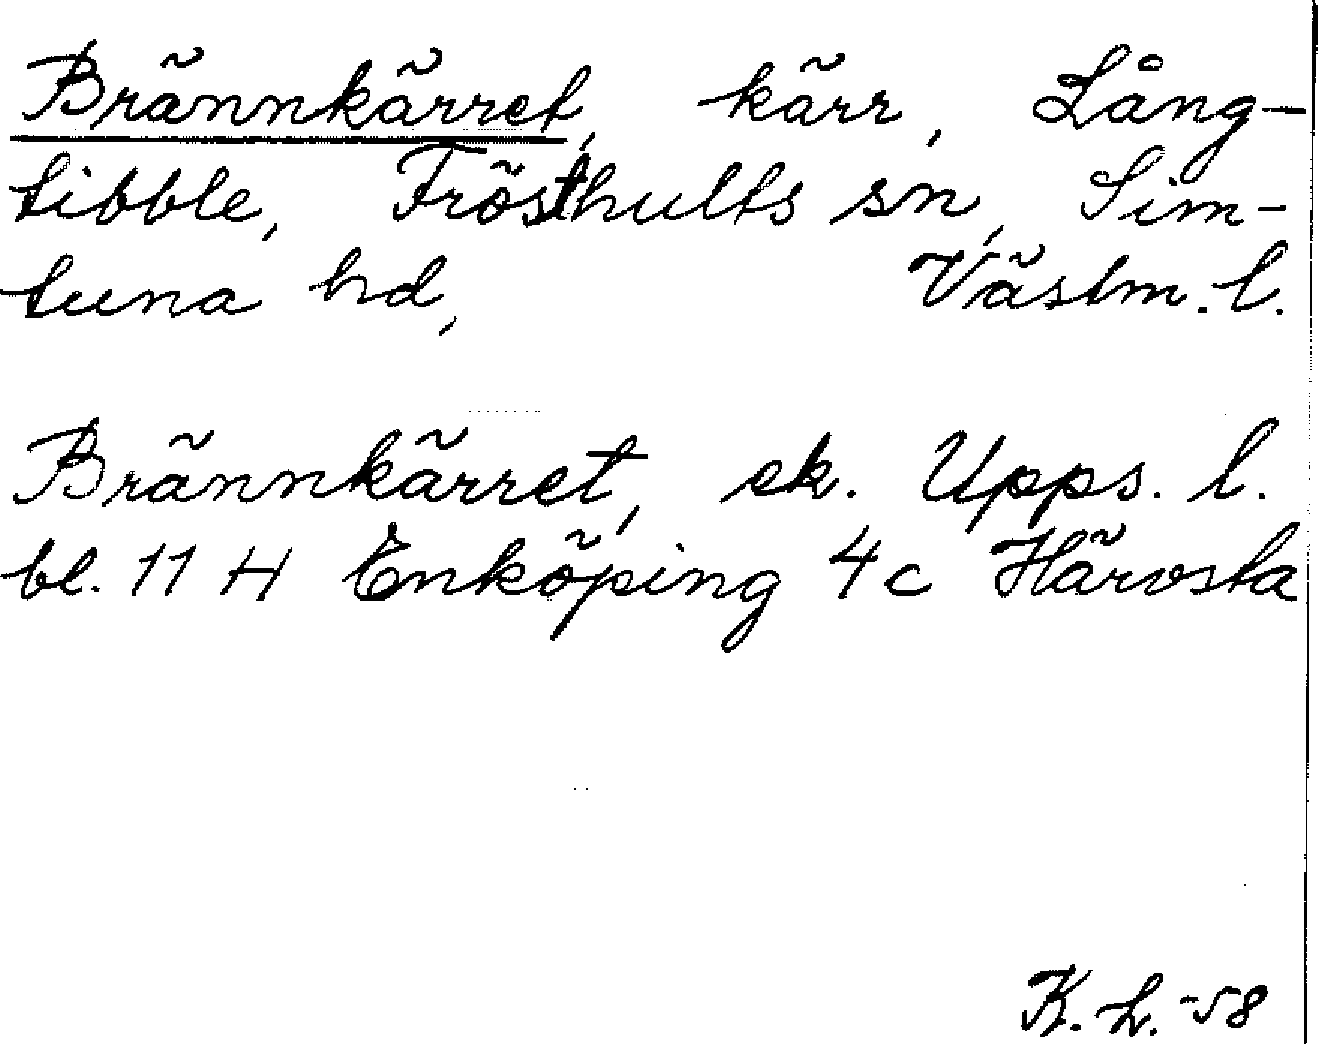 Brännkärret, kärr, Lång-
tibble, Frösthults sn, Sim-
tuna hd, Västm. l.
Brännkärret, ek. Upps. l.
bl. 11 H Enköping 4c Härvsta
K. L. -58